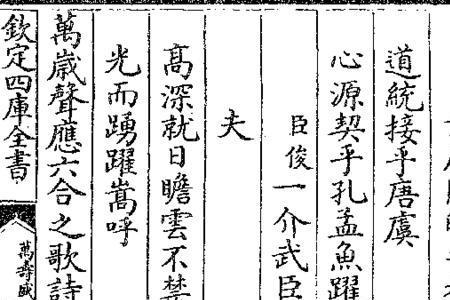 道統接乎唐虞
心源契乎孔孟魚躍
臣俊一介武臣
夫
髙深就日瞻雲不禁
光而踴躍嵩呼
萬歳聲應六合之歌詩
欽定四庫全書
萬壽盛